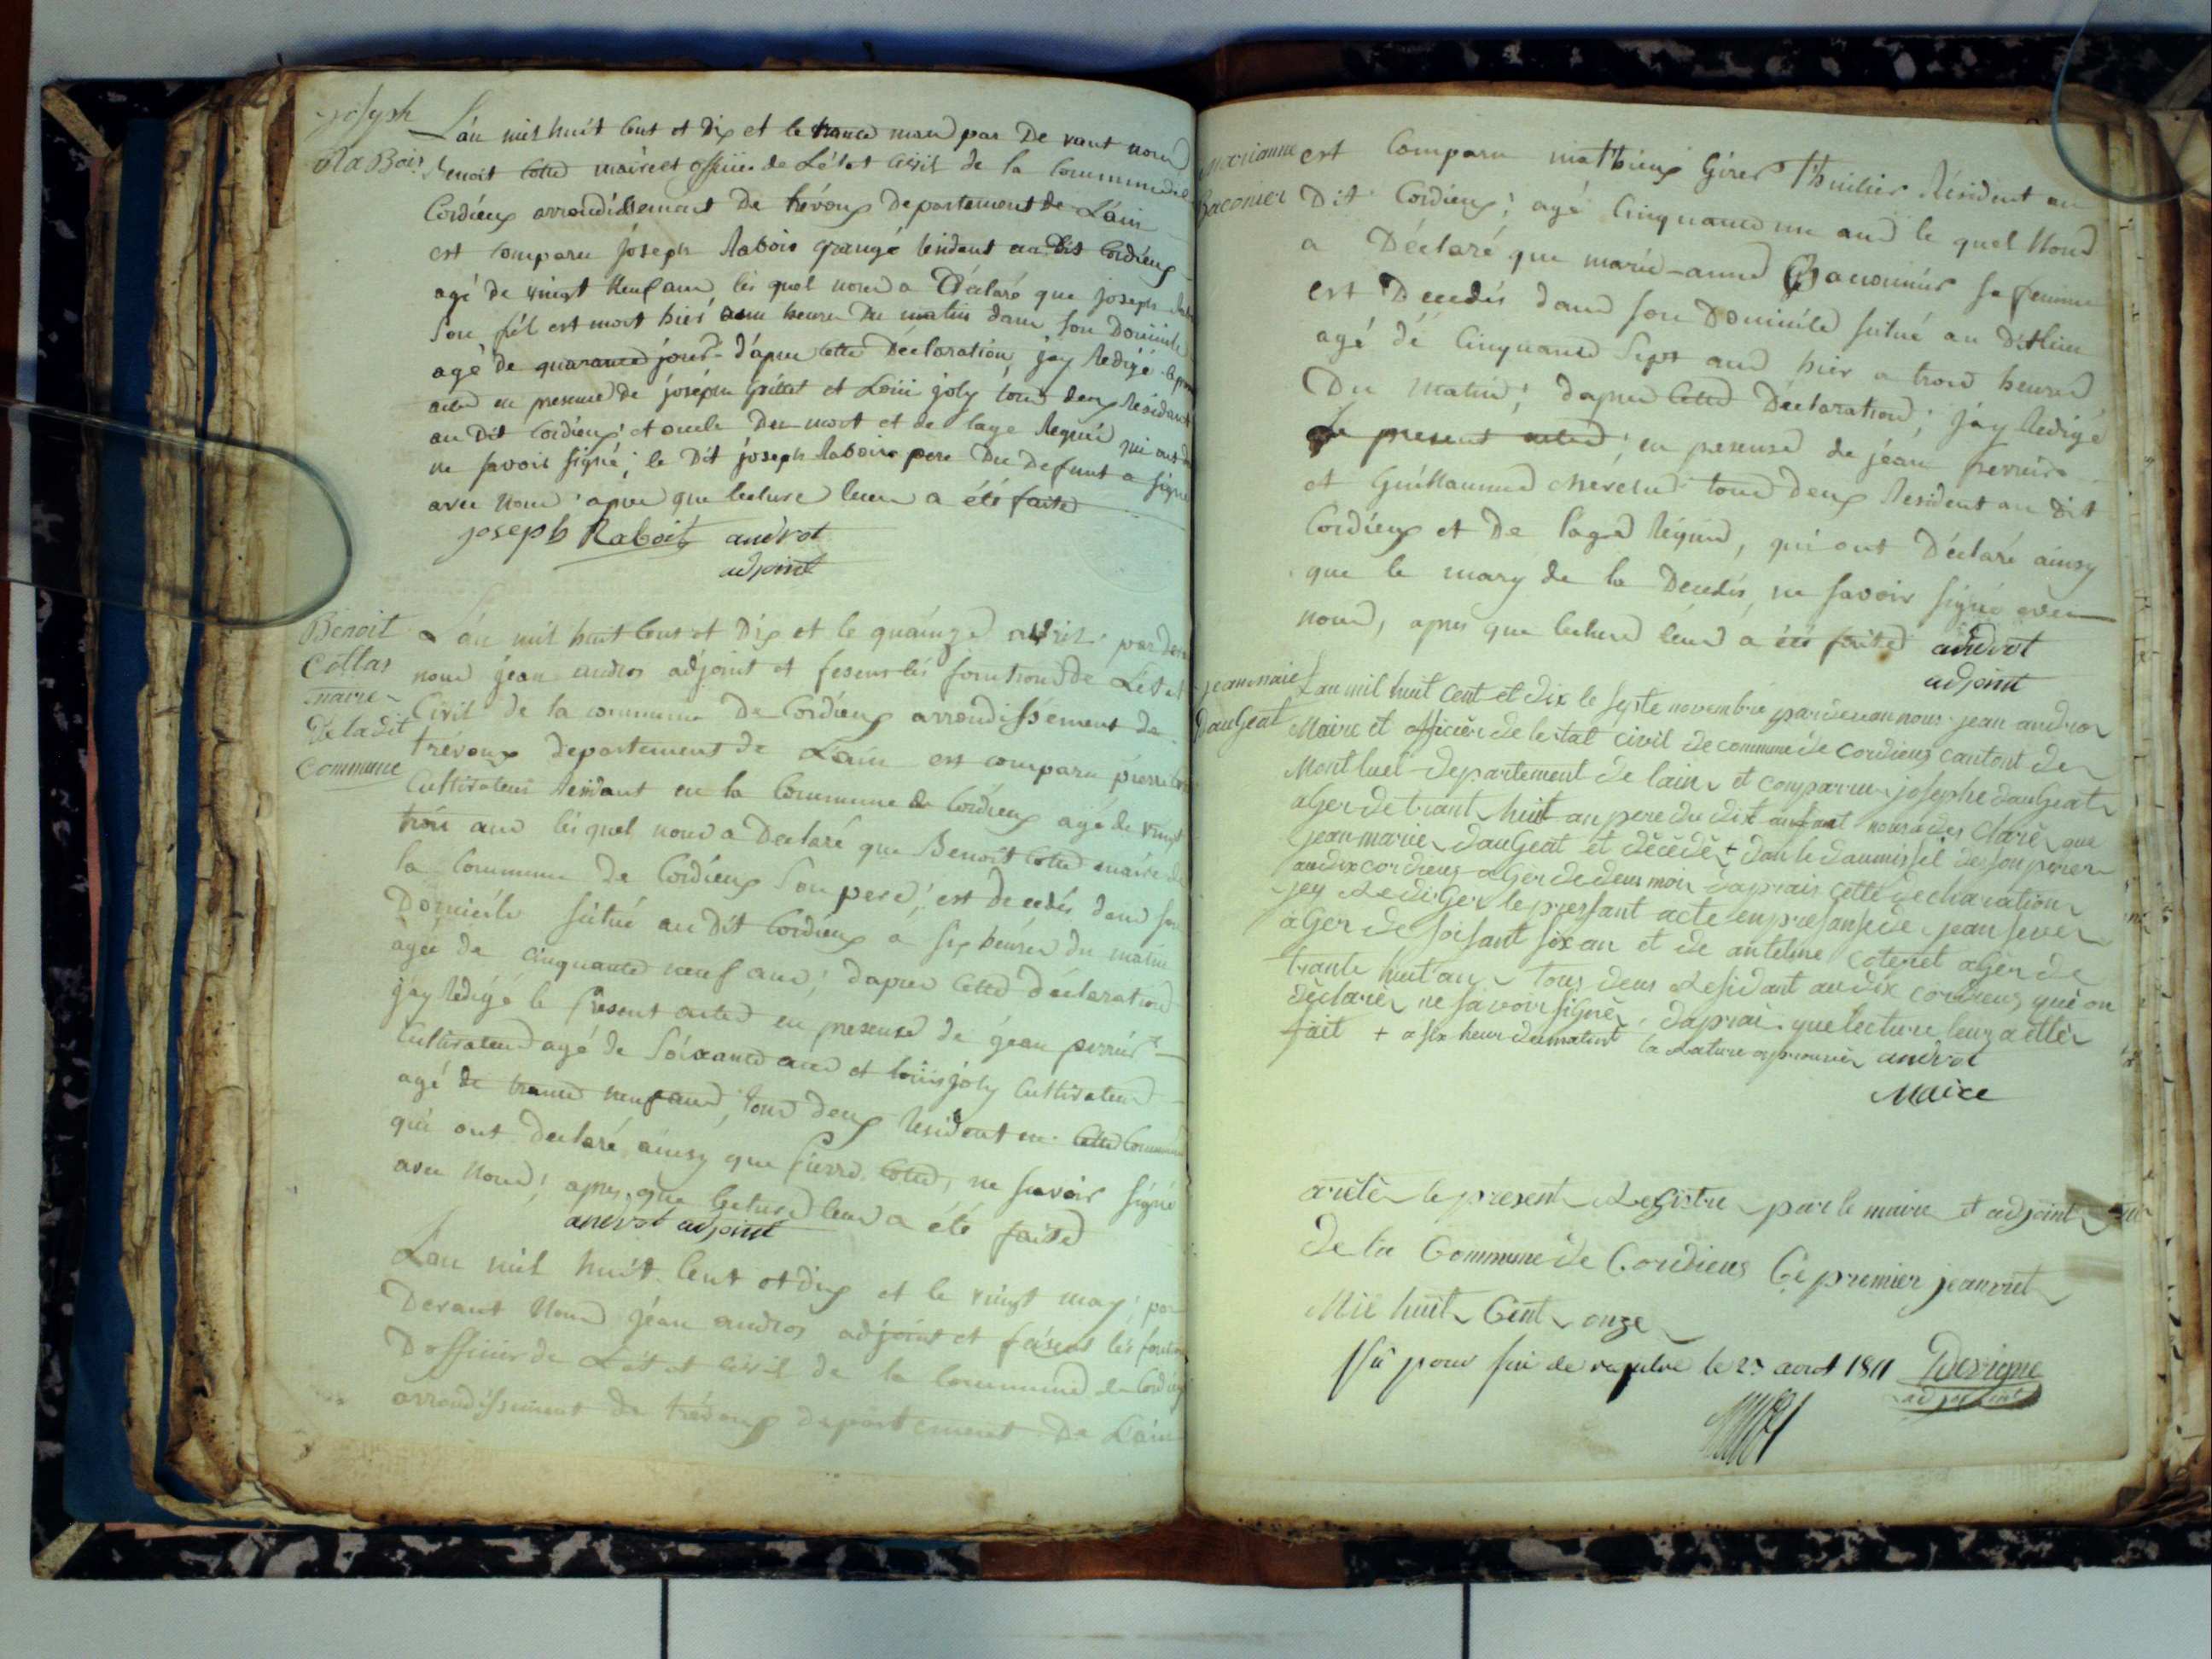 joseph
Rabois
L'an mil huit Cent et Dix et le trante mars par De vant nous
Benoit Cottas maire et officier de L'état Civil de la Commune de
Cordieux arrondissement De trévoux Departement de L'ain
est comparu joseph Rabois grangé résident au Dit Cordieux
agé de vingt Neuf ans lé quel nous a Déclaré que joseph
Son fils est mort hiér heures Du matin dans son Domicile
agé de quarante jours d'apres Cette Déclaration jay Redigé le
acte en presence de joseph grillet et Loüi joly tous deux Résidant
au Dit Cordieux et oncle Du mort et de lage Requis qui ont
ne savoir signé; le Dit joseph Rabois pere Du Defunt a signé
avec Nous apres que lecture leur a été faite
joseph Raboit androt
adjoint
Benoit
Cottas
maire
De ladit
Commune
L'an mil huit Cent et Dix et le quainze avril par
nous jean andros adjoint et fesent lés fonctions de L'état
Civil de la commune De Cordieux arrondissement de
trévoux departement de L'ain est comparu pierre
Cultivateur Residant en la Commune de Cordieux agé de vingt
trois ans léquel nous a Declaré que Benoit Cottas maire de
la Commune de Cordieux Son pere; est Decedés dans son
Domicile situé au Dit Cordieux a six heures du matin
agée de cinquante neuf ans; dapres Cette déclaration
jay Redigé le present acte en presense de jean perrier
Cultivateur agé de Soixante ans et loüis joly Cultivateur
agé de trante neuf ans, tous deux Résident en Cette Commune
qui ont declaré ainsy que pierre Cottas, ne savoir signé
avec Nous; apres que lecture leur a été faite
androt adjoint
L'an mil huit Cent et dix et le vingt may; par
Devant Nous jean andros adjoint et faisent lés
D'officier de L'état civil de la Commune de Cordieux
arrondissement de trévoux departement De L'ain
marianne
Baconier
est Comparu mathieux Girer thuilier Résident au
Dit Cordieux; agé Cinquante un ans le quel Nous
a Déclaré que marie-anne Baconnier sa femme
est Decedés dans son Domicile situé au Dit lieu
agé dé Cinquante Sept ans hier a trois heures
Du matin; dapres Cette Déclaration; jay Redigé
Le present acte; en presense de jéan perrier
et Guillaume tous deux Resident au Dit
Cordieux et De l'age Réquis, qui ont Déclaré ainsy
que le mary de la Decedés, ne savoir signé avec
nous, apres que lecture leur a été faite androt
adjoint
jeanmarie
DauGeat
Lan mil huit Cent et dix le septe novembre pardevan nous jean andros
Maire et officier de lestat civil de commune de Cordieux cantont de
Montluel Departement de lain et comparu josephe dauGeat
aGer de trant huit an pere du dit anfant nous a des Claré que
jean marie dauGeat et décédé + dan le daumissil de son perer
audix cordieux aGer de deux mois daprais cette decharation
jey Re diGer le pressant acte en presanse de jean sever
aGer de soisant six an et de antelme coteret aGer de
trante huit an tous deux Residant au dix cordieux qui on
déclarér ne savoir siGnér, daprai que lecture leur a étté
fait + a six heur dumatint la Rature approuvér androt
Maire
arrêté le present Registre par le maire et adjoint
de la Commune de Cordieux Ce premier jeanviet
Mil huit Cent onze
Vu pour servir de 1811
adjoint